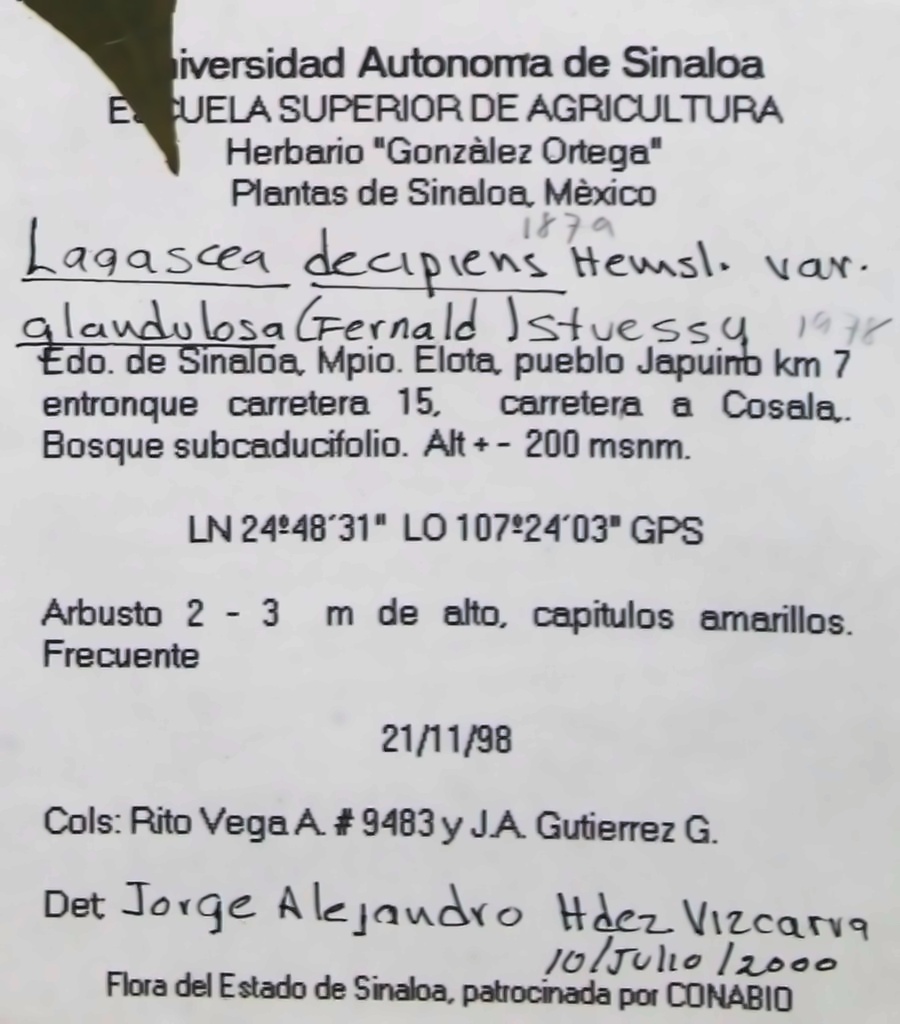 iversidad Autonoma de Sinaloa
ESCUELA SUPERIOR DE AGRICULTURA
Herbario "Gonzàlez Ortega"
Plantas de Sinaloa, Mèxico
1879
Lagascea decipiens Hemsl. var.
glandulosa (Fernald) Stuessy 1978
Edo. de Sinaloa, Mpio. Elota, pueblo Japuino km 7
entronque carretera 15, carretera a Cosala,.
Bosque subcaducifolio. Alt + - 200 msnm.
LN 24º48´31" LO 107º24´03" GPS
Arbusto 2 - 3 m de alto, capitulos amarillos.
Frecuente
21/11/98
Cols: Rito Vega A. # 9483 y J.A. Gutierrez G.
Det Jorge Alejandro Hdez Vizcarra
10/Julio/2000
Flora del Estado de Sinaloa, patrocinada por CONABIO